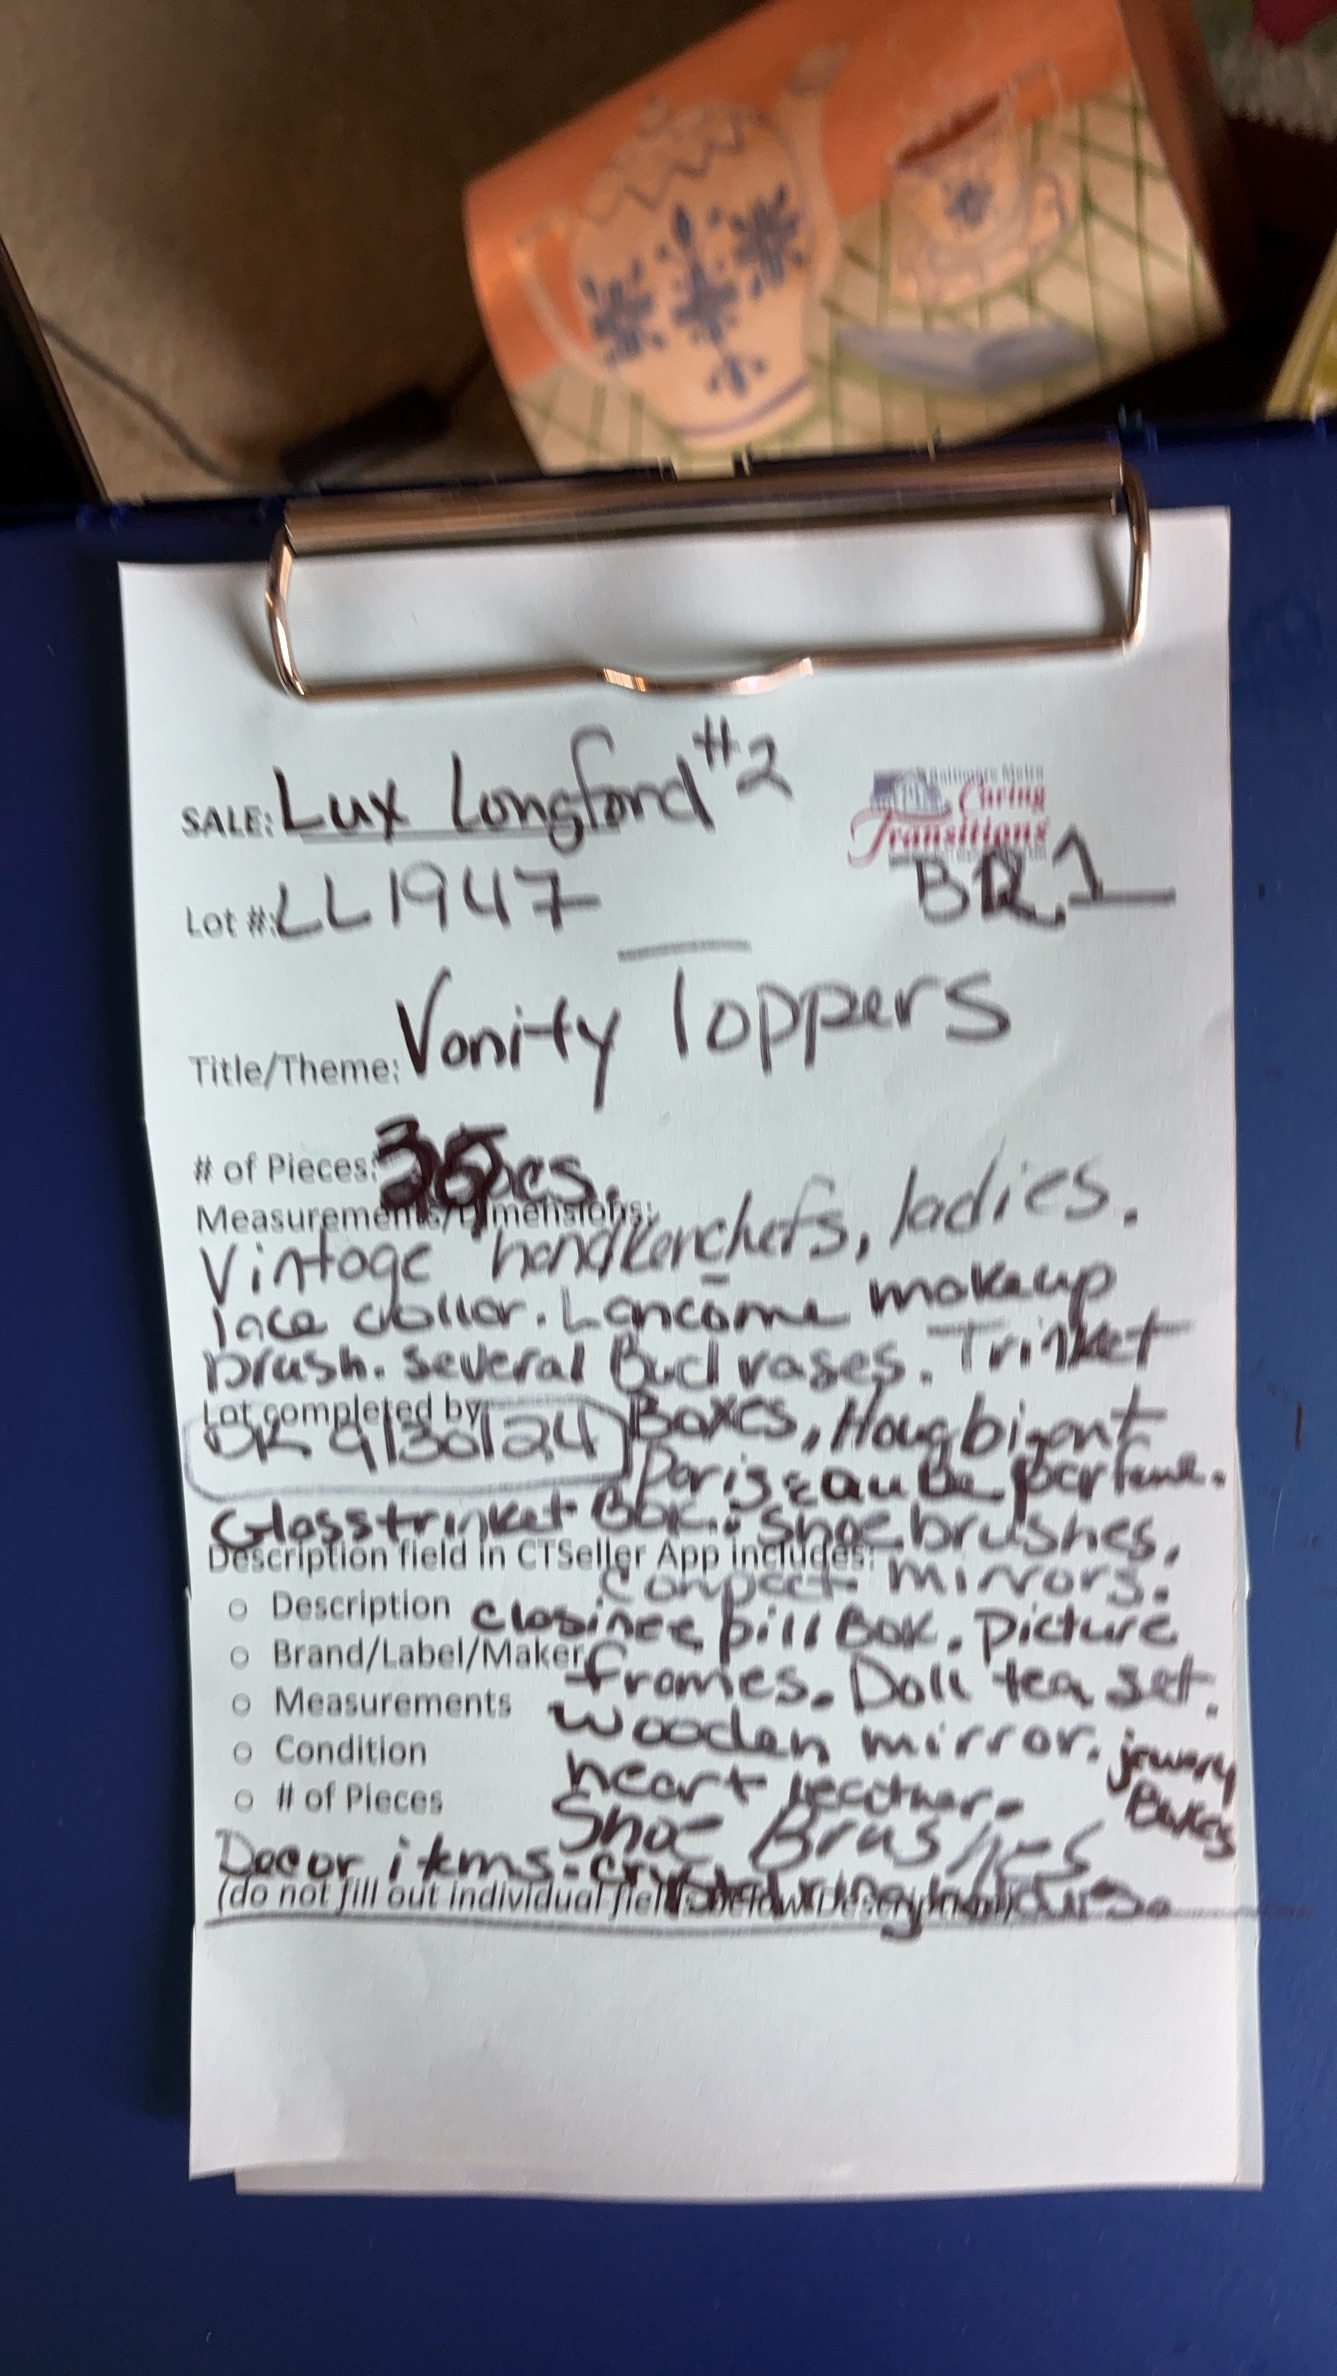 SALE: Lux Longford #2
Baltimore Metro
Caring
Transitions
Lot #: LL1947
BR.1
Title/Theme: Vanity Toppers
# of Pieces: pcs.
Measurements/Dimensions:
Vintage handkerchefs, ladies.
lace collar. Lancome makeup
brush. several Bud vases. Trinket
Lot completed by:
BK 9/30/24
Boxes, Houbigant
Paris eau De parfume.
Glass trinket Box. Shoe brushes,
Description field in CTSeller App includes:
conpact mirrors.
○ Description
pill Box. Picture
○ Brand/Label/Maker
frames. Doll tea set.
○ Measurements
wooden mirror. jewery
Boxes
○ Condition
heart
○ # of Pieces
Shoe Brushes
Decor items. crystal ring
(do not fill out individual fields below Description)